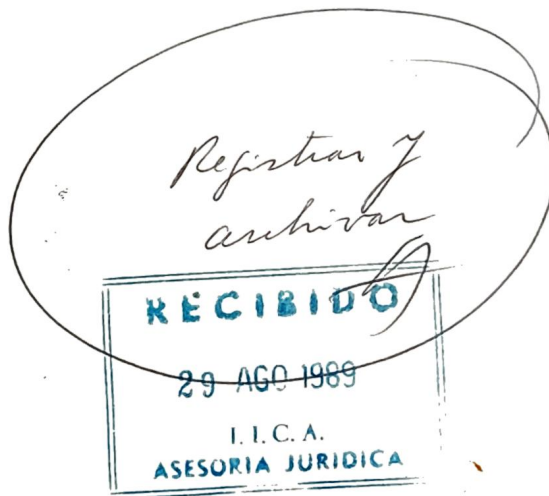 Registrar y
archivar
RECIBIDO
29 AGO 1989
I. I. C. A.
ASESORIA JURIDICA